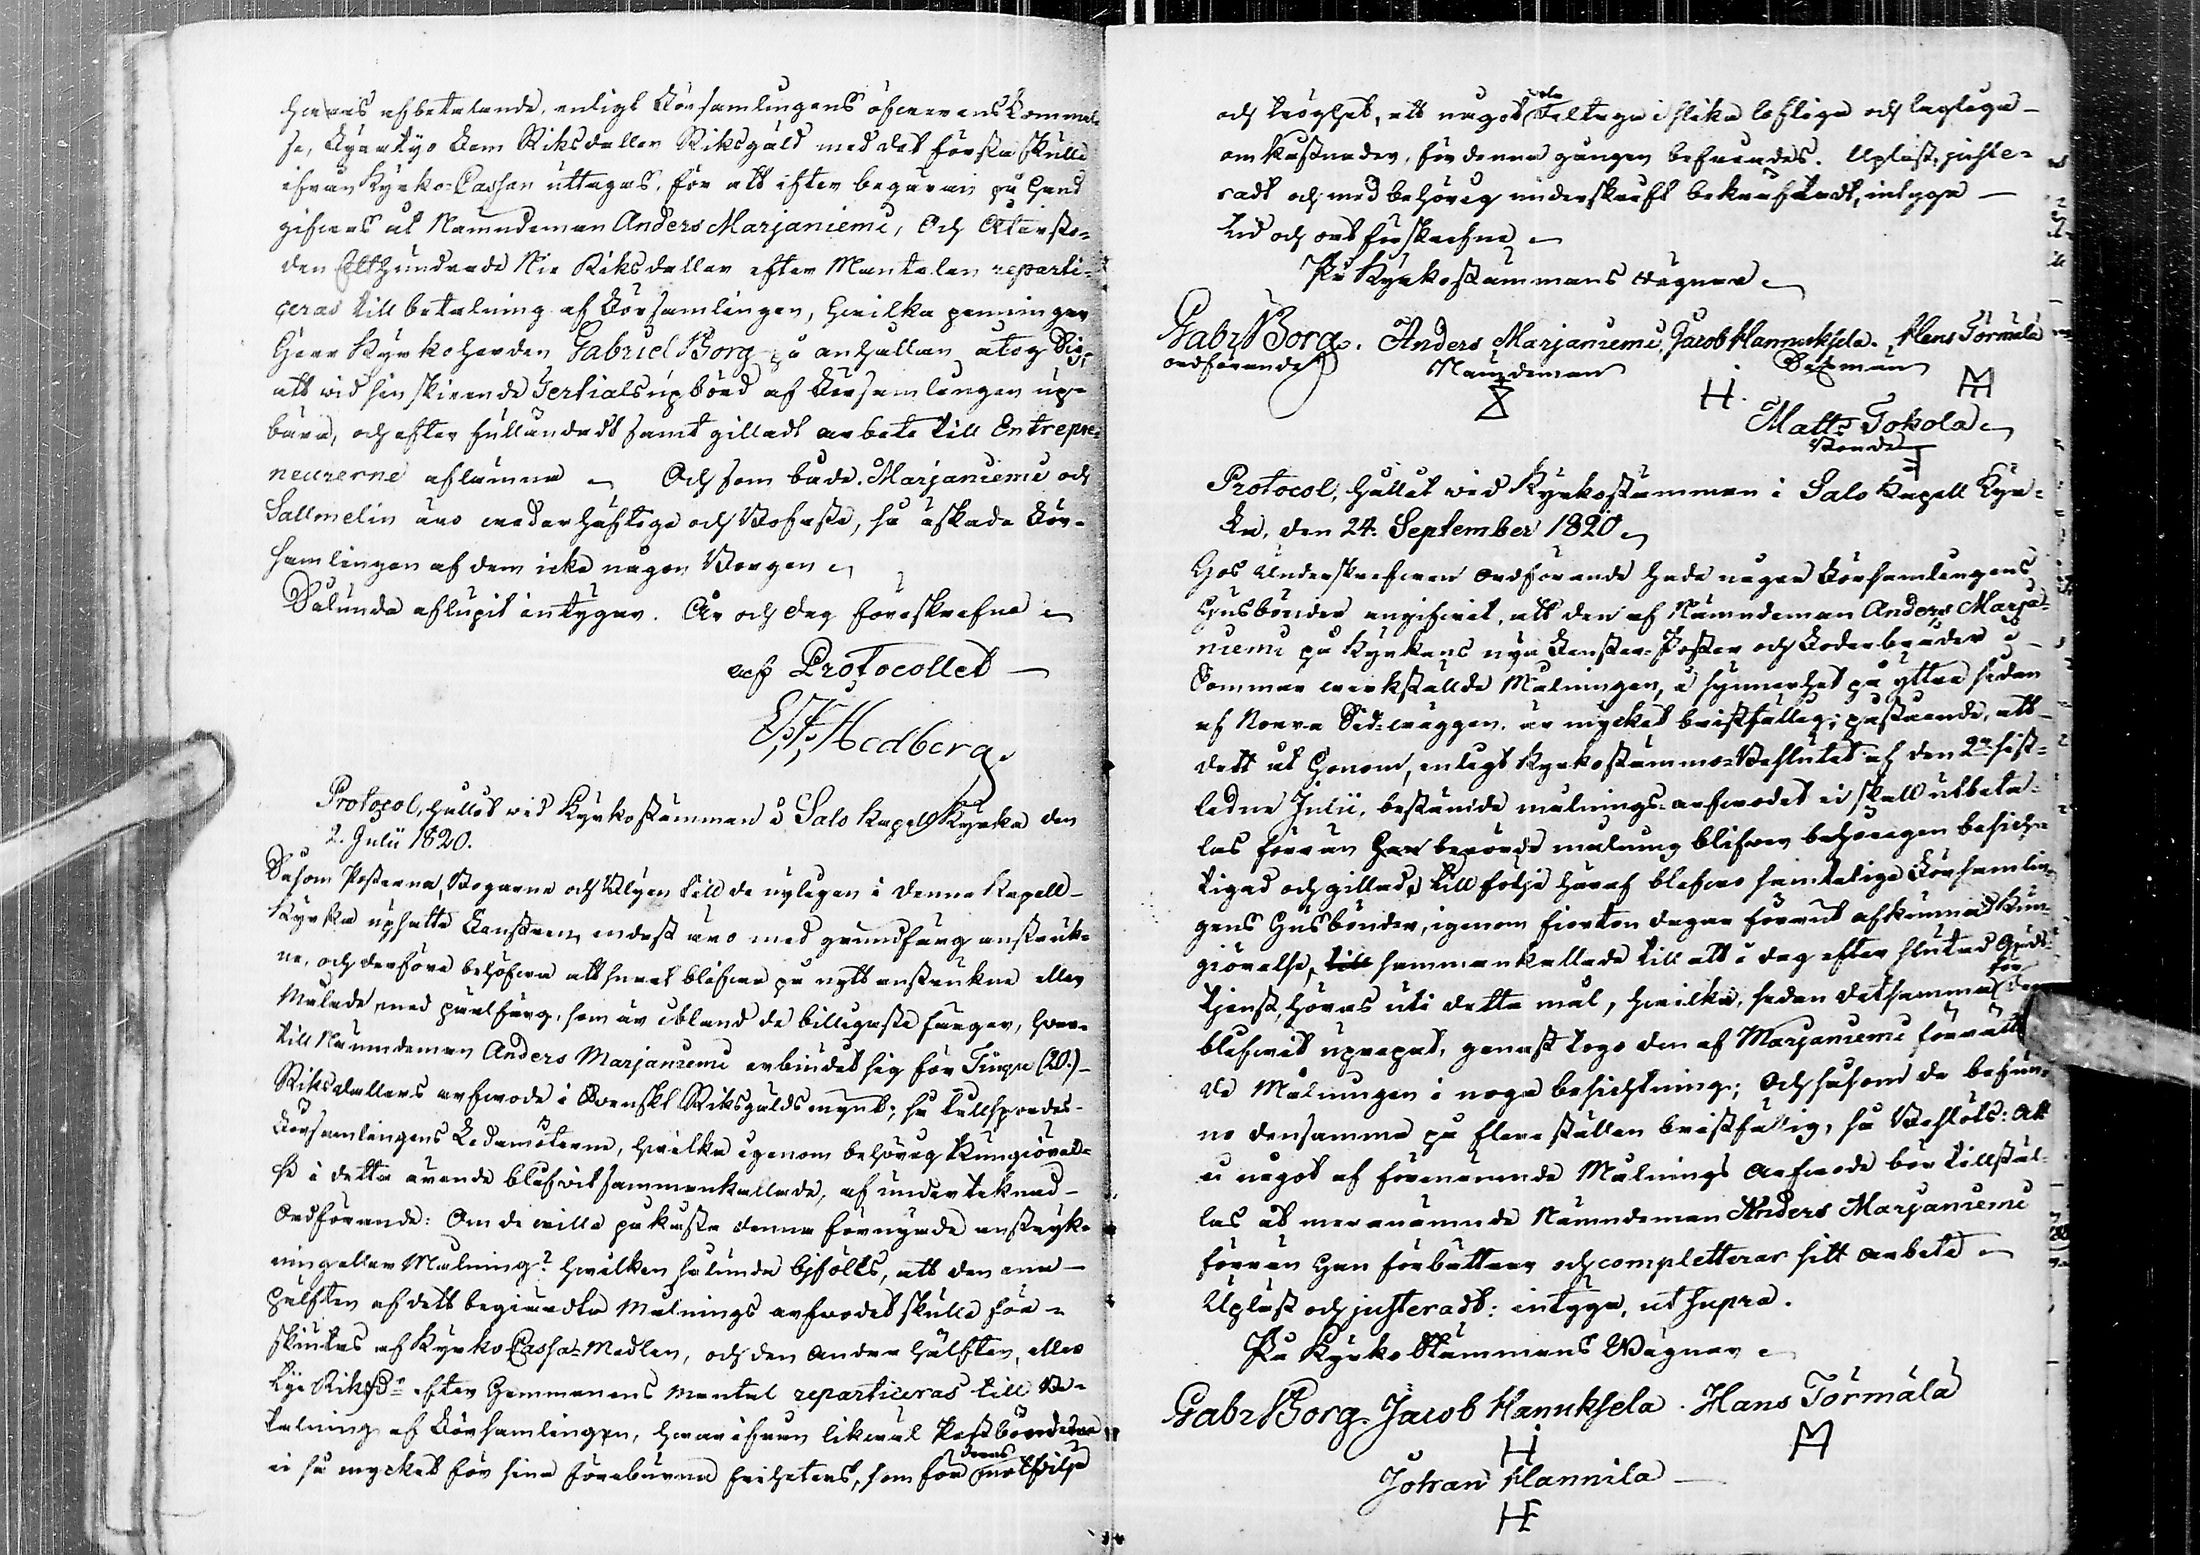 hwars afbetalande, enligt Församlingens öfwerenskommel-
se, Fyratijo Fem Riksdaller Riksgäld med det första skulle
ifrån Kyrko-Cassan uttagas, för att efter begäran på hand
gifwas åt Nämndeman Anders Marjaniemi, Och Återsto-
den Etthundrade Nie Riksdaller efter Mantalen reparti-
ceras till betalning af Församlingen, hwilka penningar
Herr Kyrkoherden Gabriel Borg på anhållan åtog Sig
att wid sin skeende Tertialsupbörd af Församlingen up-
bära, och efter fulländadt samt gilladt arbete till Entrepre-
neurerne aflämna. Och som både Marjaniemi och
Sallmelin äro wederhäftige och Bofaste, så äskade För-
samlingen af dem icke någon Borgen.
Sålunda aflupit intygar. År och dag föreskrefne
af Protocollet
Hedberg.
Protocol, hållet wid Kyrkostämman i Salo Kapell Kyrka den
2. Julii 1820.
Såsom Posterna, Bogarne och Blyen till de nyligen i denna Kapell-
Kyrka upsatte Fenstren, endast äro med grundfärg anstruk-
ne, och derföre behöfwa att snart blifwa på nytt anstrukne eller
Målade med pärlfärg, som är ibland de billigaste färger, hwar-
till Nämndeman Anders Marjaniemi erbiudet sig för Tiugu (20.)
Riksdallers arfwode i Swenskt Riksgälds mynt; så tillspordes
Församlingens Ledamöterne, hwilka igenom behörig Kungiörel-
se i detta ärende blifwit sammankallade, af undertecknad
Ordförande: Om de wille påkosta denna förnyade anstryk-
ning eller Målning? hwilken sålunda bifölls, att den ena
hälften af dett begiärdta Målnings arfwodet skulle för-
skiutas af Kyrko Cassa-Medlen, och den andra hälften, eller
Tijo RiksDr efter Hemmanens Mantal reparticeras till Be-
talning af Församlingen, hwarifrån likwäl Postbönderne
ei så mycket för sina föreburna friheters, som för deras
och tröghet, att något wela deltaga i slika loflige och laglige
omkostnader, för denna gången befriades. Upläst, juste-
radt och med behörig underskrift bekräftadt, intyga
tid och ort förskrefne
På Kyrkostämmans wägnar
Gabr. Borg. Anders Marjaniemi, Jacob Hannuksela. Hans Törmälä
ordförande Nämdeman Sexman
H. HM
Matts Tokola
Bonde
Protocol, hållet wid Kyrkostämman i Salo Kapell Kyr-
ka, den 24. September 1820
Hos Underskrefwen ordförande hade några Församlingens
Husbönder angifwit, att den af Nämndeman Anders Marja-
niemi på Kyrkans nya Fenster-Poster och Foderbräder i
Sommar werkstälde Målningen, i synnerhet på yttra sidan
af Norra Sid-wäggen, är mycket bristfällig; påstående, att
dett åt honom, enligt Kyrkostämmo-Beslutet af den 2dra sist-
ledne Julii, bestämde målnings-arfwodet ei skall utbeta-
las förrän berörde målning blifwer behörigen besich-
tigad och gillad; till följe häraf blefwo samtelige Församlin-
gens Husbönder, igenom fiorton dagar förut afkunnad Kun-
giörelse, sammankallade till att i dag efter slutad Guds-
tjenst, höras uti detta mål, hwilka, sedan detsamma för dem
blifwit uprepat, genast togo den af Marjaniemi förrätta-
de Målningen i noga besichtning; Och såsom de befun-
no densamma på flere ställen bristfällig, så Beslöts: Att
ei något af förenämnde Målnings Arfwode bör tillstäl-
las åt meranämnde Nämndeman Anders Marjaniemi
förrän Han förbättrar och completterar sitt Arbete
Upläst och justeradt: intyga, ut supra.
På Kyrko Stämmans Wägnar
Gabr Borg. Jacob Hanuksela. Hans Törmälä
H HM
Johan Hannila
HF